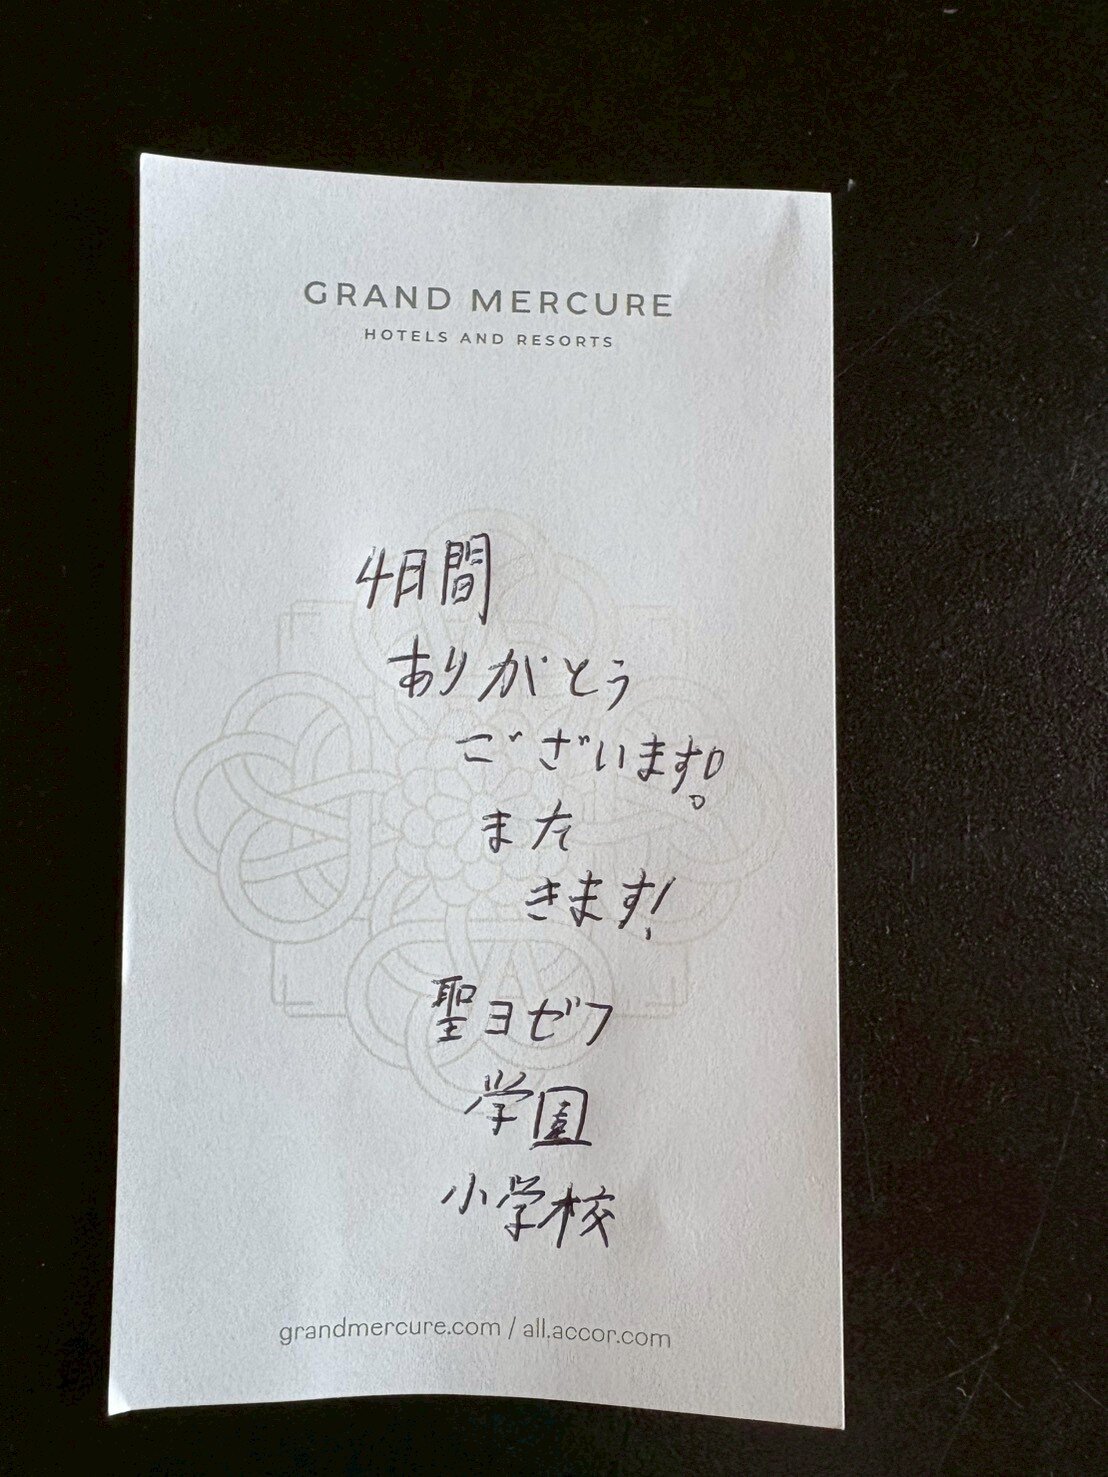 GRAND MERCURE
HOTELS AND RESORTS
4日間
ありがとう
ございます!
また
きます!
聖ヨゼフ
学園
小学校
grandmercure.com / all.accor.com